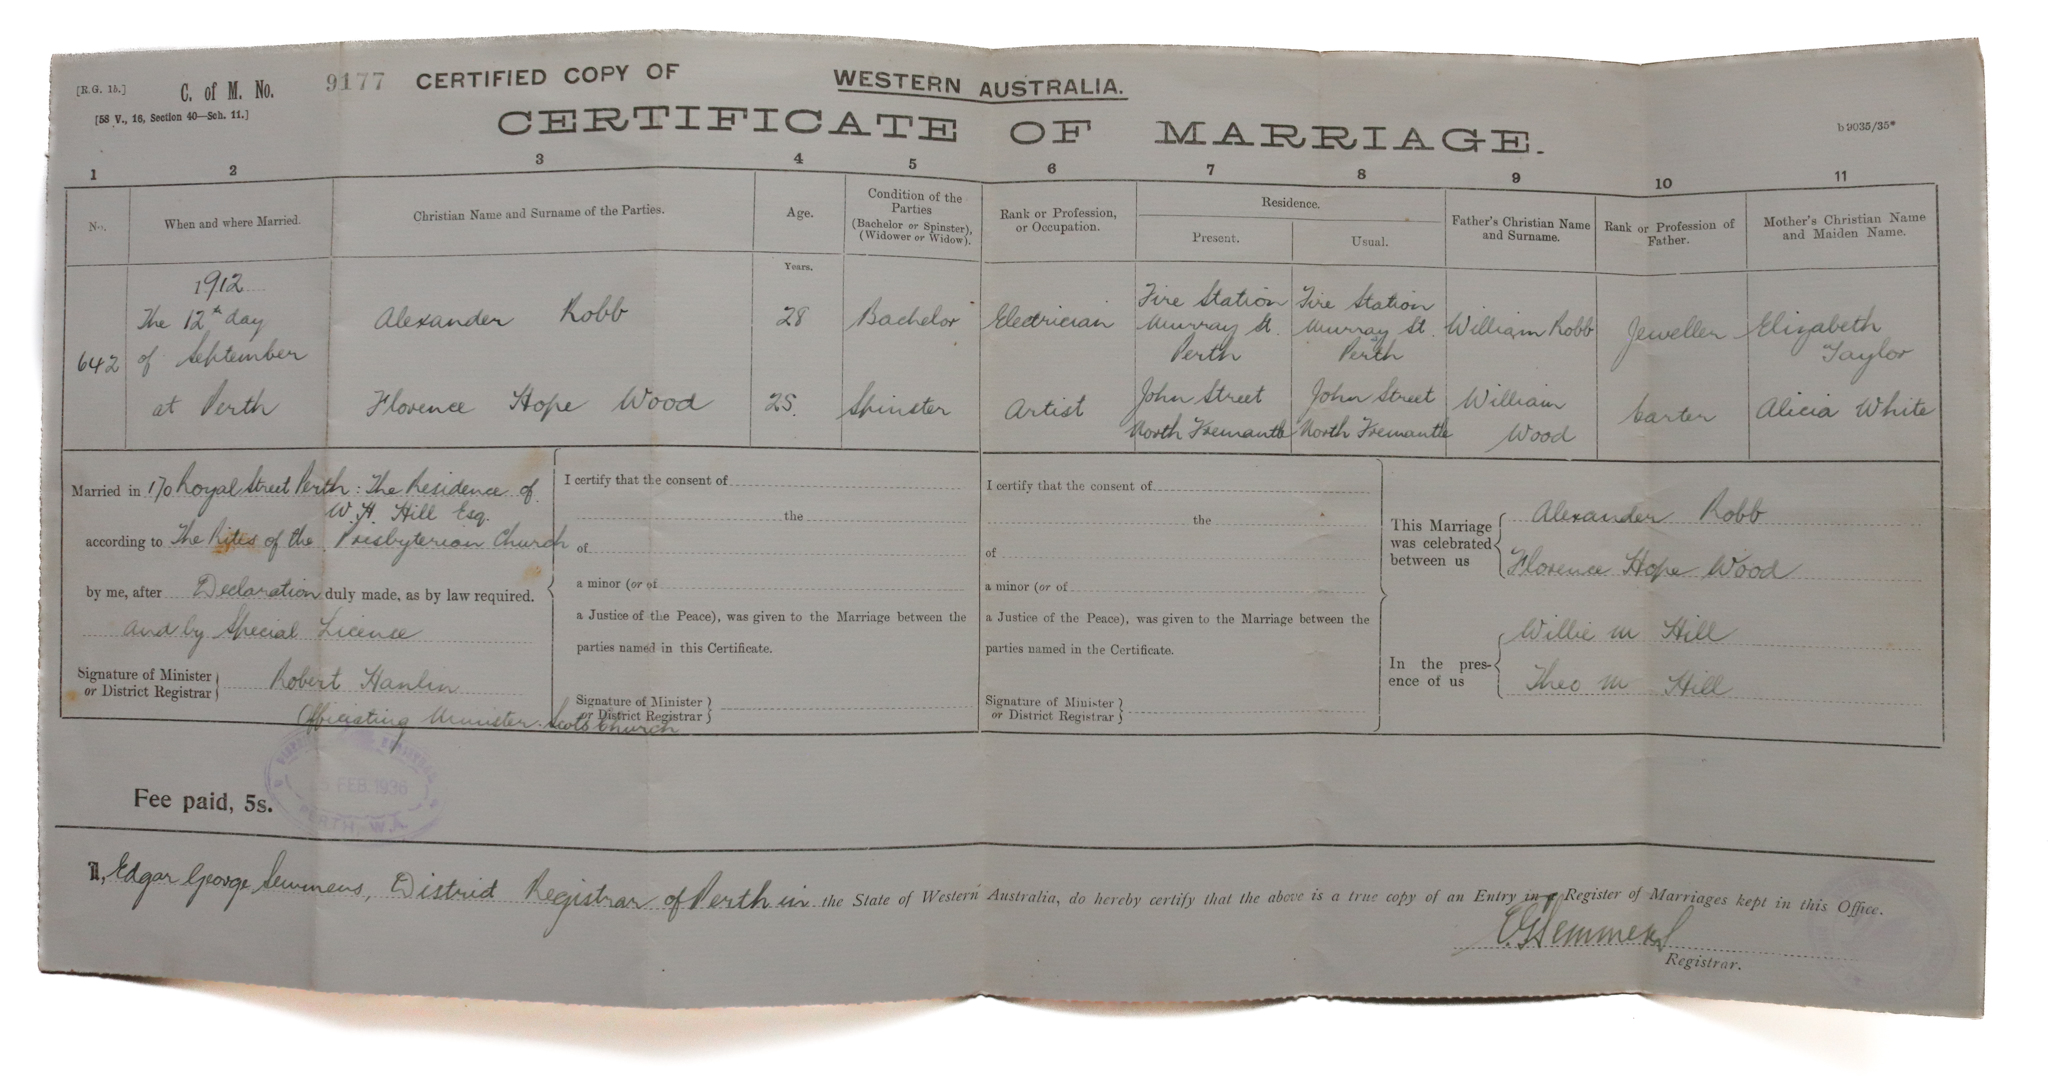 [R.G. 15.] C. of M. No. 9177 CERTIFIED COPY OF WESTERN AUSTRALIA.
[58 V., 16, Section 40—Sch. 11.]
CERTIFICATE OF MARRIAGE.
b 9035/35*
1 2 3 4 5 6 7 8 9 10 11
No.
When and where Married.
Christian Name and Surname of the Parties.
Age.
Condition of the
Parties
(Bachelor or Spinster),
(Widower or Widow).
Rank or Profession,
or Occupation.
Residence.
Present.
Usual.
Father's Christian Name
and Surname.
Rank or Profession of
Father.
Mother's Christian Name
and Maiden Name.
Years.
642
1912
The 12th day
of September
at Perth
Alexander Robb
28
Bachelor
Electrician
Fire Station
Murray St.
Perth
Fire Station
Murray St.
Perth
William Robb
Jeweller
Elizabeth
Taylor
Florence Hope Wood
25.
Spinster
Artist
John Street
North Fremantle
John Street
North Fremantle
William
Wood
Carter
Alicia White
Married in 170 Royal Street Perth: The Residence of
W. H. Hill Esq.
according to The Rites of the Presbyterian Church
by me, after Declaration duly made, as by law required.
and by Special Licence
Signature of Minister
or District Registrar
Robert Hanlin
Officiating Minister. Scots Church
I certify that the consent of
the
of
a minor (or of
a Justice of the Peace), was given to the Marriage between the
parties named in this Certificate.
Signature of Minister
or District Registrar
I certify that the consent of
the
of
a minor (or of
a Justice of the Peace), was given to the Marriage between the
parties named in the Certificate.
Signature of Minister
or District Registrar
This Marriage
was celebrated
between us
Alexander Robb
Florence Hope Wood
In the pres-
ence of us
Willie M Hill
Theo M Hill
Fee paid, 5s.
FEB. 1936
PERTH, W.A.
I, Edgar George Semmens, District Registrar of Perth in the State of Western Australia, do hereby certify that the above is a true copy of an Entry in a Register of Marriages kept in this Office.
E G Semmens
Registrar.